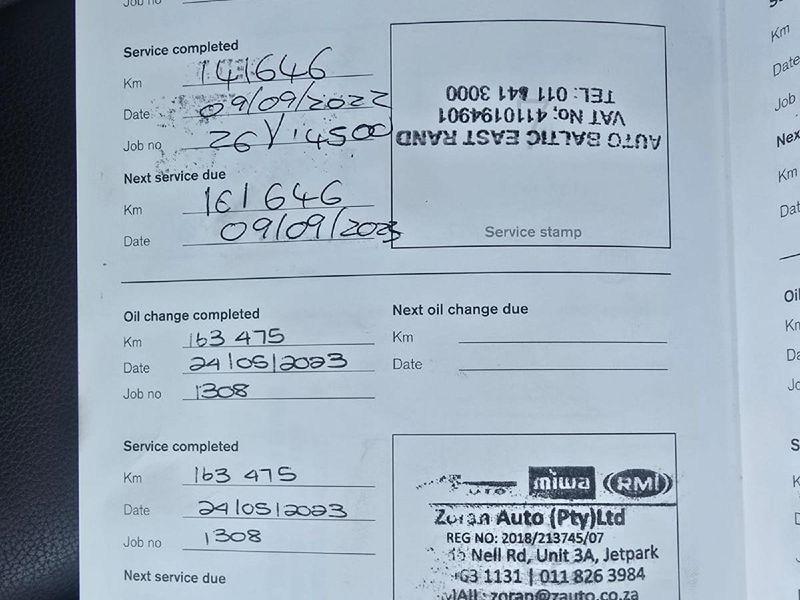 Job no
Service completed
Km 141646
Date 09/09/2022
Job no
Next service due
Km 161646
Date 09/09/2023
AUTO BALTIC EAST RAND
VAT No; 4110194901
TEL: 011 841 3000
Service stamp
Oil change completed
Km 163 475
Date 24/05/2023
Job no 1308
Next oil change due
Km
Date
Service completed
Km 163 475
Date 24/05/2023
Job no 1308
Next service due
miwa RMI
Zoran Auto (Pty)Ltd
REG NO: 2018/213745/07
Nell Rd, Unit 3A, Jetpark
1131 | 011 826 3984
zoran@zauto.co.za
Km
Date
Job
Next
Km
Dat
Oil